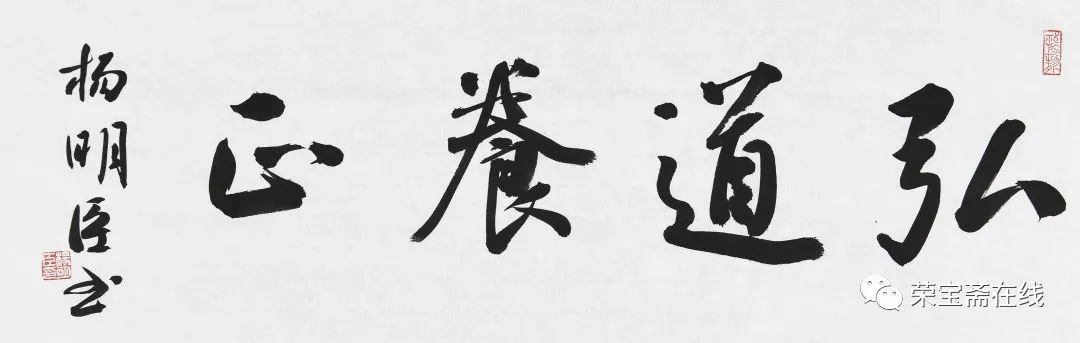 弘道養正
杨明臣书
荣宝斋在线